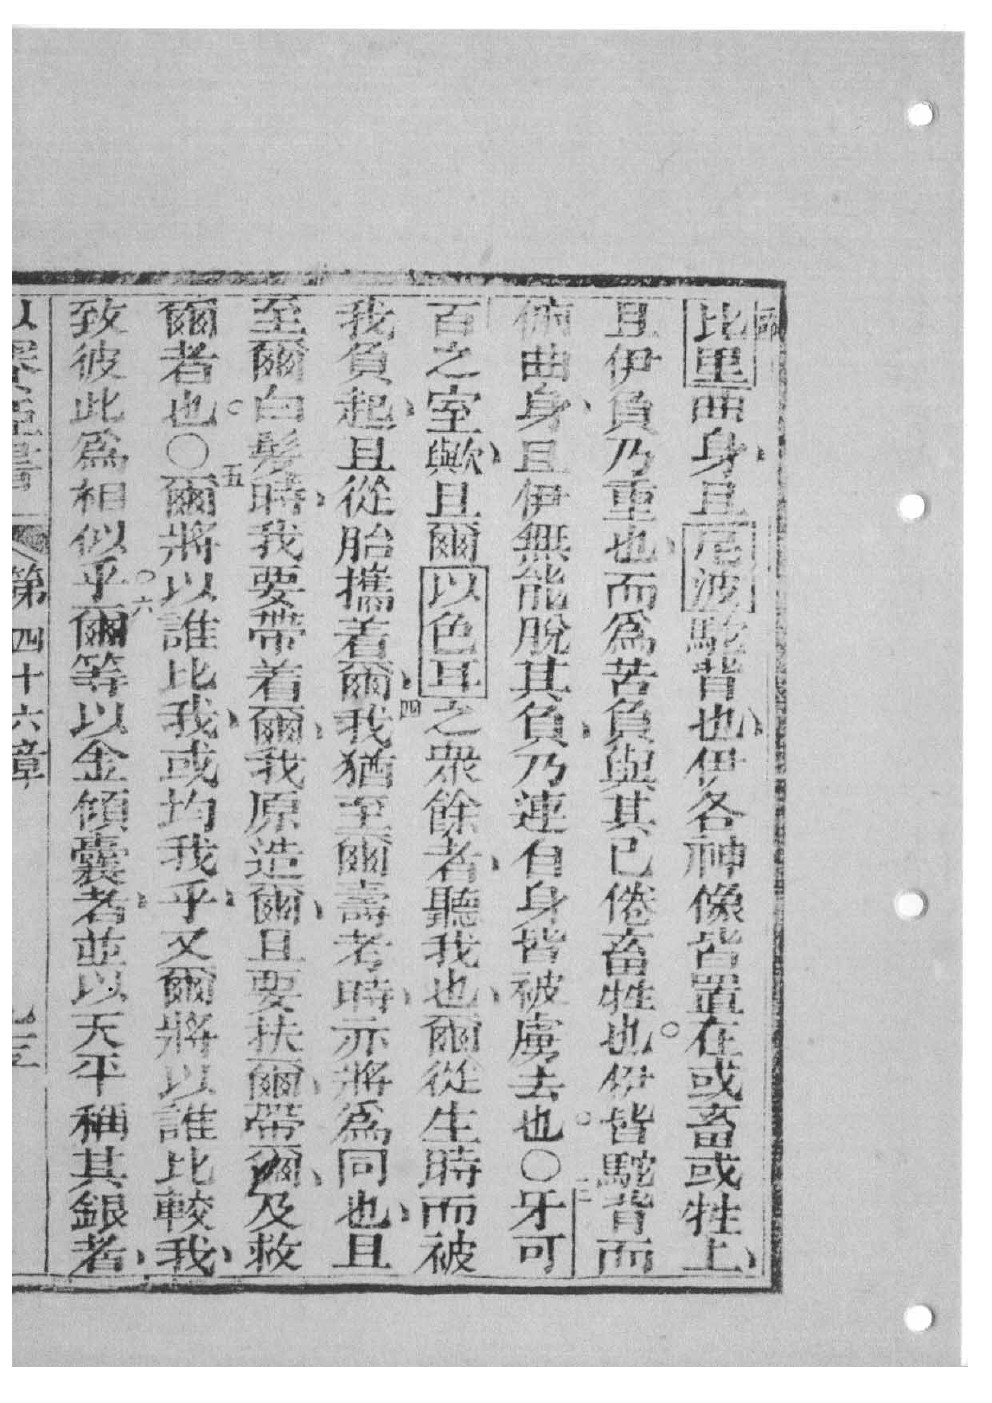 比里曲身、且尼波駝背也、伊各神像皆置在或畜或牲上、
且伊負乃重也、而為苦負與其已倦畜牲也。伊皆駝背而
俯曲身、且伊無能脫其負、乃連自身皆被虜去也。〇三牙可
百之室歟、且爾以色耳之眾餘者、聽我也、爾從生時而被
我負起、且從胎攜着爾、四我猶至爾壽考時、亦將為同也、且
至爾白髮時、我要帶着爾、我原造爾、且要扶爾、帶爾、及救
爾者也。〇五爾將以誰比我、或均我乎、又爾將以誰比較我、
致彼此為相似乎。六爾等以金傾囊者、並以天平稱其銀者、
第四十六章